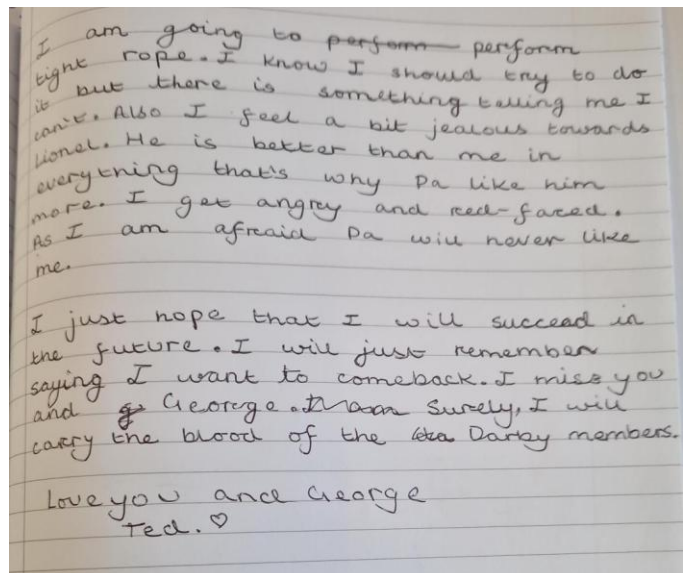 I am going to perform perform
tight rope. I know I should try to do
it but there is something telling me I
can't. Also I feel a bit jealous towards
Lionel. He is better than me in
everything that's why Pa like him
more. I get angry and red-faced.
As I am afraid Pa will never like
me.
I just hope that I will succeed in
the future. I will just remember
saying I want to comeback. I miss you
and George. Surely, I will
carry the blood of the Darby members.
Love you and George
Ted. ♡